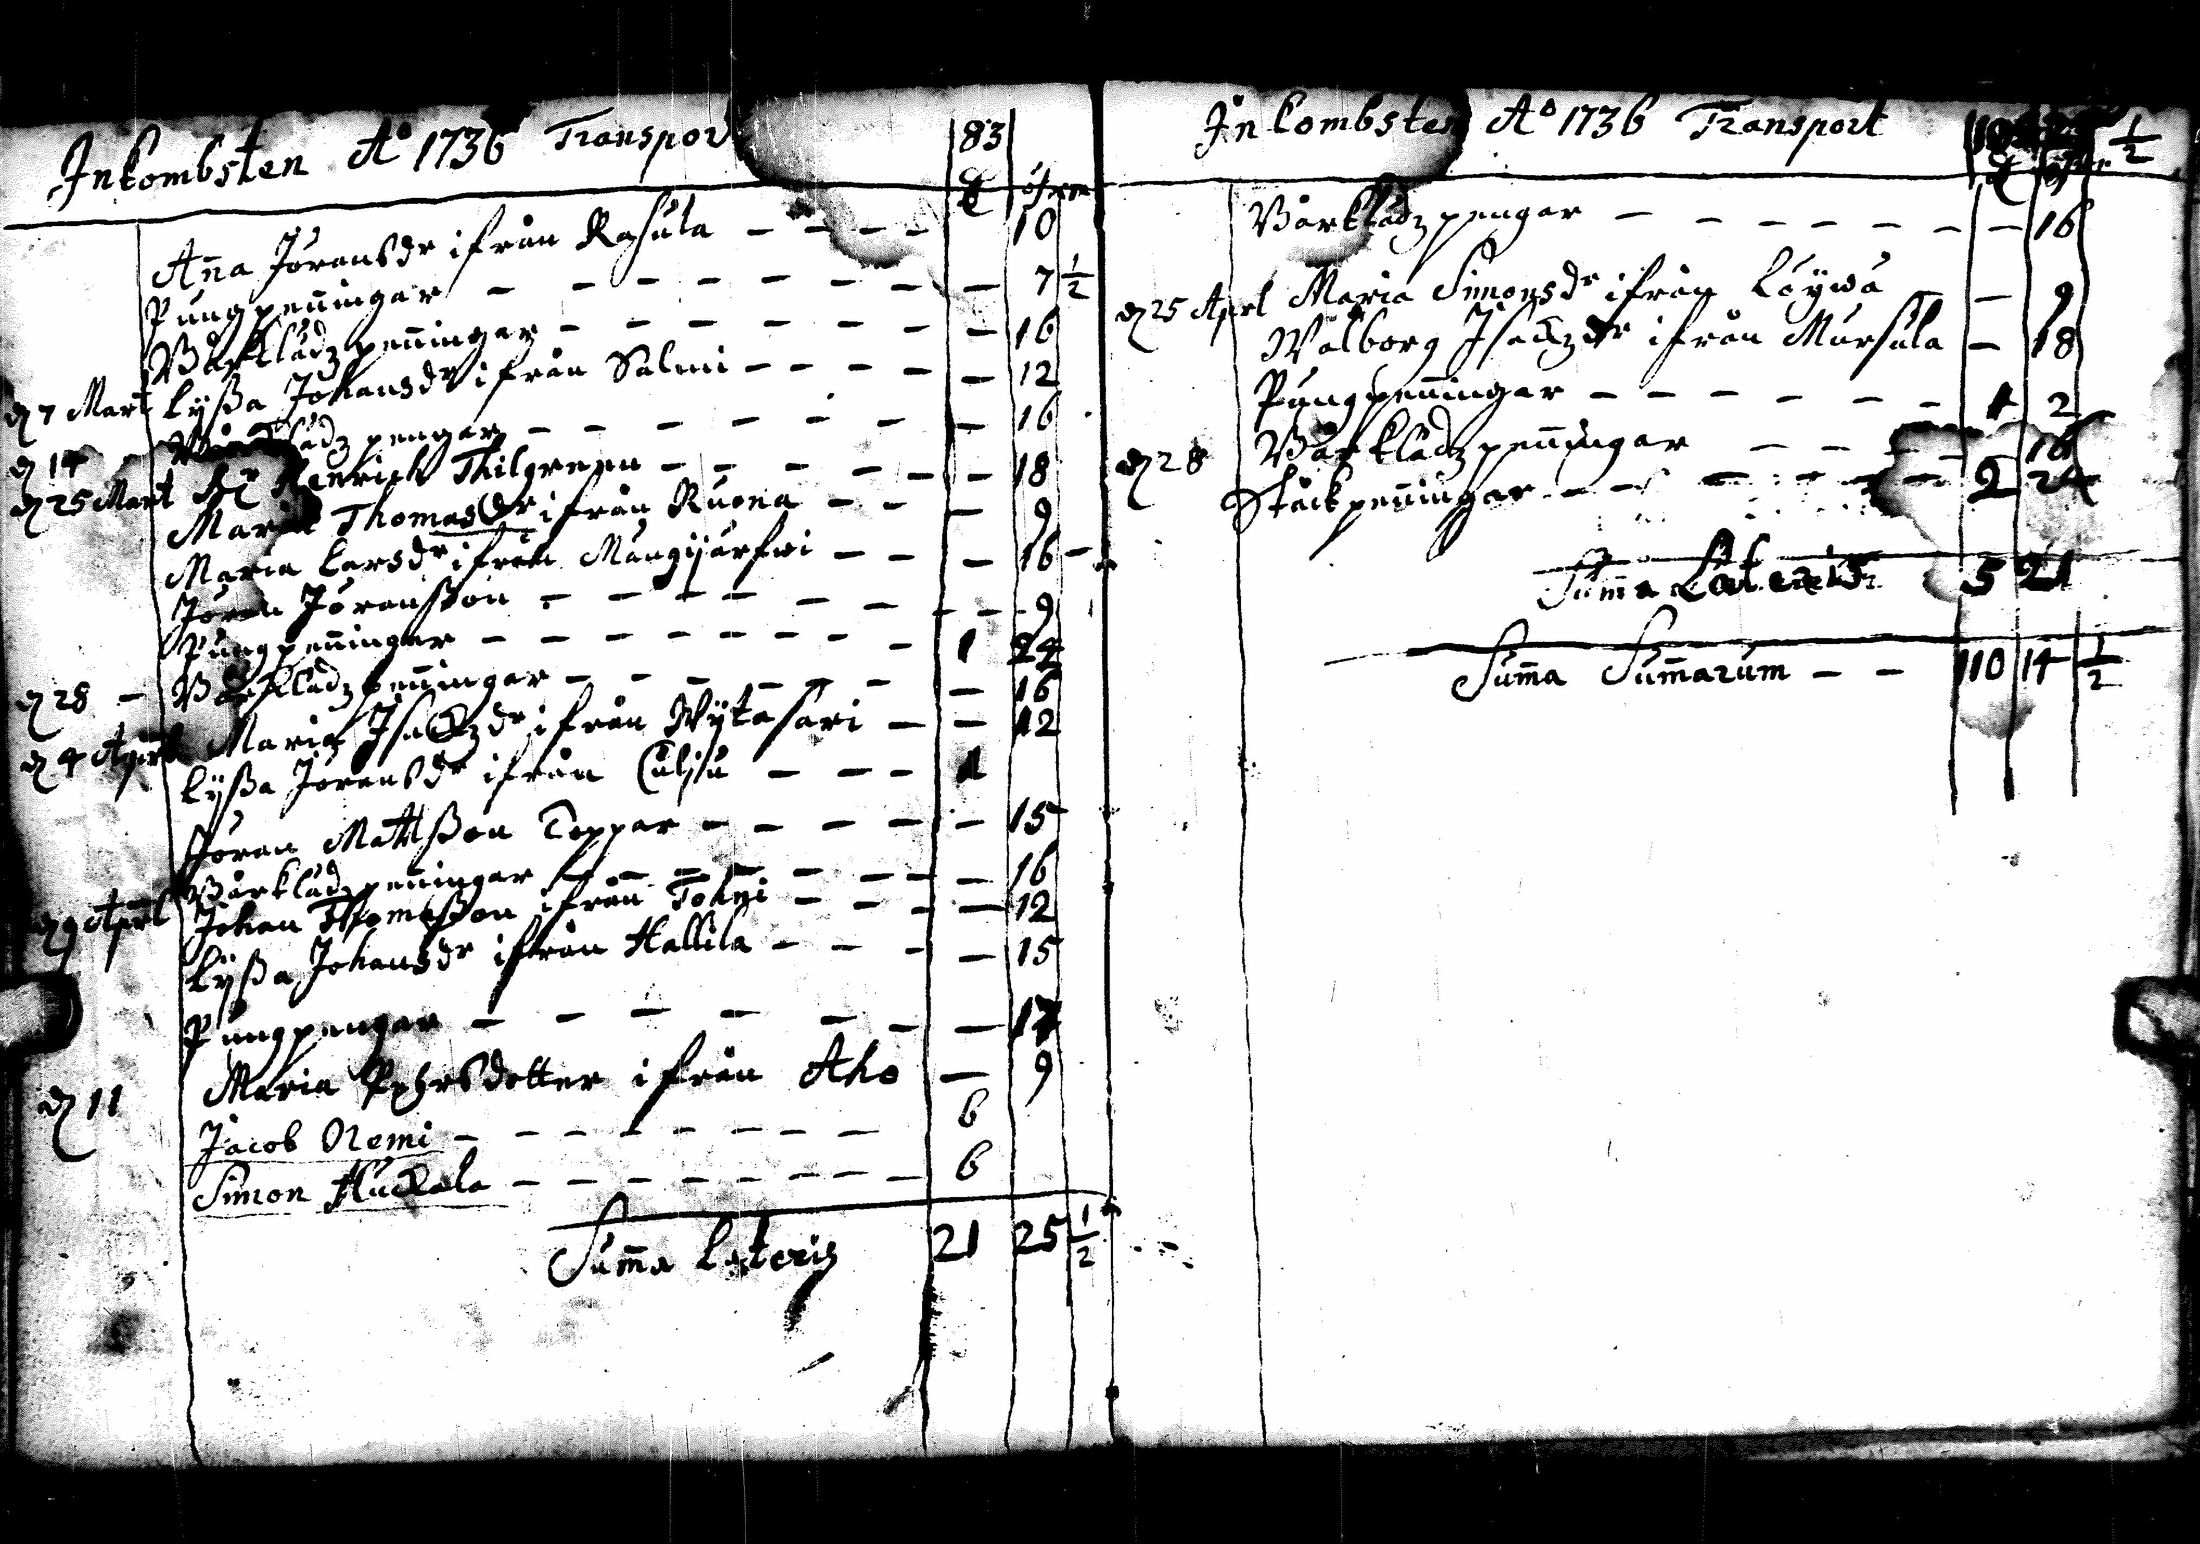 Inkombsten Aº 1736 Transpor 83
öfrm
Anna Jöransdr ifrån Rasula — — — — 10
Pungpenningar — — — — — — — 7 1/2
Wårklädz penningar — — — — — — 16
dn 7 Mart Lyßa Johansdr ifrån Salmi — — — — — 12
dn 14 klädz pengar — — — — — — 16
dn 25 Mart Henrich Thilgreen — — — — — 18
Maria Thomasdr ifrån Ruona — — — 9
Maria Larsdr ifrån Mangijärfwi — — — 16 —
Jöran Jöransson — — — — — — — 9
Pungpenningar — — — — — — — — 1 24
dn 28 — Wårklädz penningar — — — — — — 16
dn 4 Aprl Maria Isackzdr ifrån Wÿtasari — — 12
Lyßa Jöransdr ifrån Culju — — — 1
Jöran Mattßon Toppar — — — — — 15
Wårklädz penningar — — — — — — 16
dn 9 Aprl Johan Thomaßon ifrån Tohni — — — — 12
Lyßa Johansdr ifrån Hallila — — — — — 15
Pungpengar — — — — — — — 17
dn 11 Maria Pehrsdotter ifrån Aho — 9
Jacob Nemi — — — — — — — — 6
Simon Huckala — — — — — — — — 6
Summa Lateris 21 25 1/2
Inkombsten Aº 1736 Transport 1/2
Wårklädz pengar — — — — — — — 16
dn 25 Aprl Maria Simonsdr ifrån Löywä — — 9
Walborg Isackzdr ifrån Mursula — 18
Pungpenningar — — — — — — 1 2
dn 28 Wårklädz penningar — — — 16
Stäckpenningar — — — — — — 2 24
Summa Lateris 5 21
Summa Summarum — — 110 14 1/2